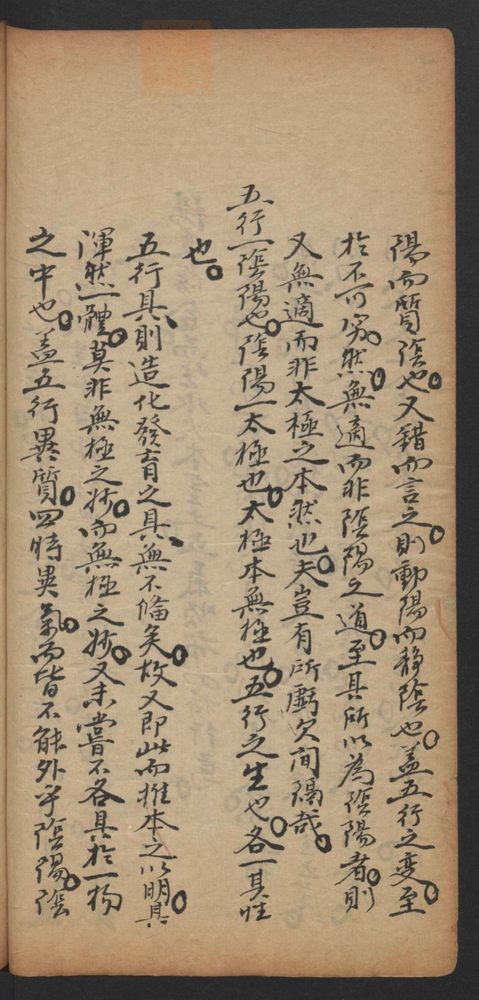 陽而質陰也又錯而言之則動陽而靜陰也蓋五行之變至
於不可窮然無適而非陰陽之道至其所以為陰陽者則
又無適而非太極之本然也夫豈有所虧欠間隔哉
五行一陰陽也陰陽一太極也太極本無極也五行之生也各一其性
也
五行具則造化發育之具無不備矣故又即此而推本之以明其
渾然一體莫非無極之妙而無極之妙又未嘗不各具於一物
之中也蓋五行異質四時異氣而皆不能外乎陰陽陰